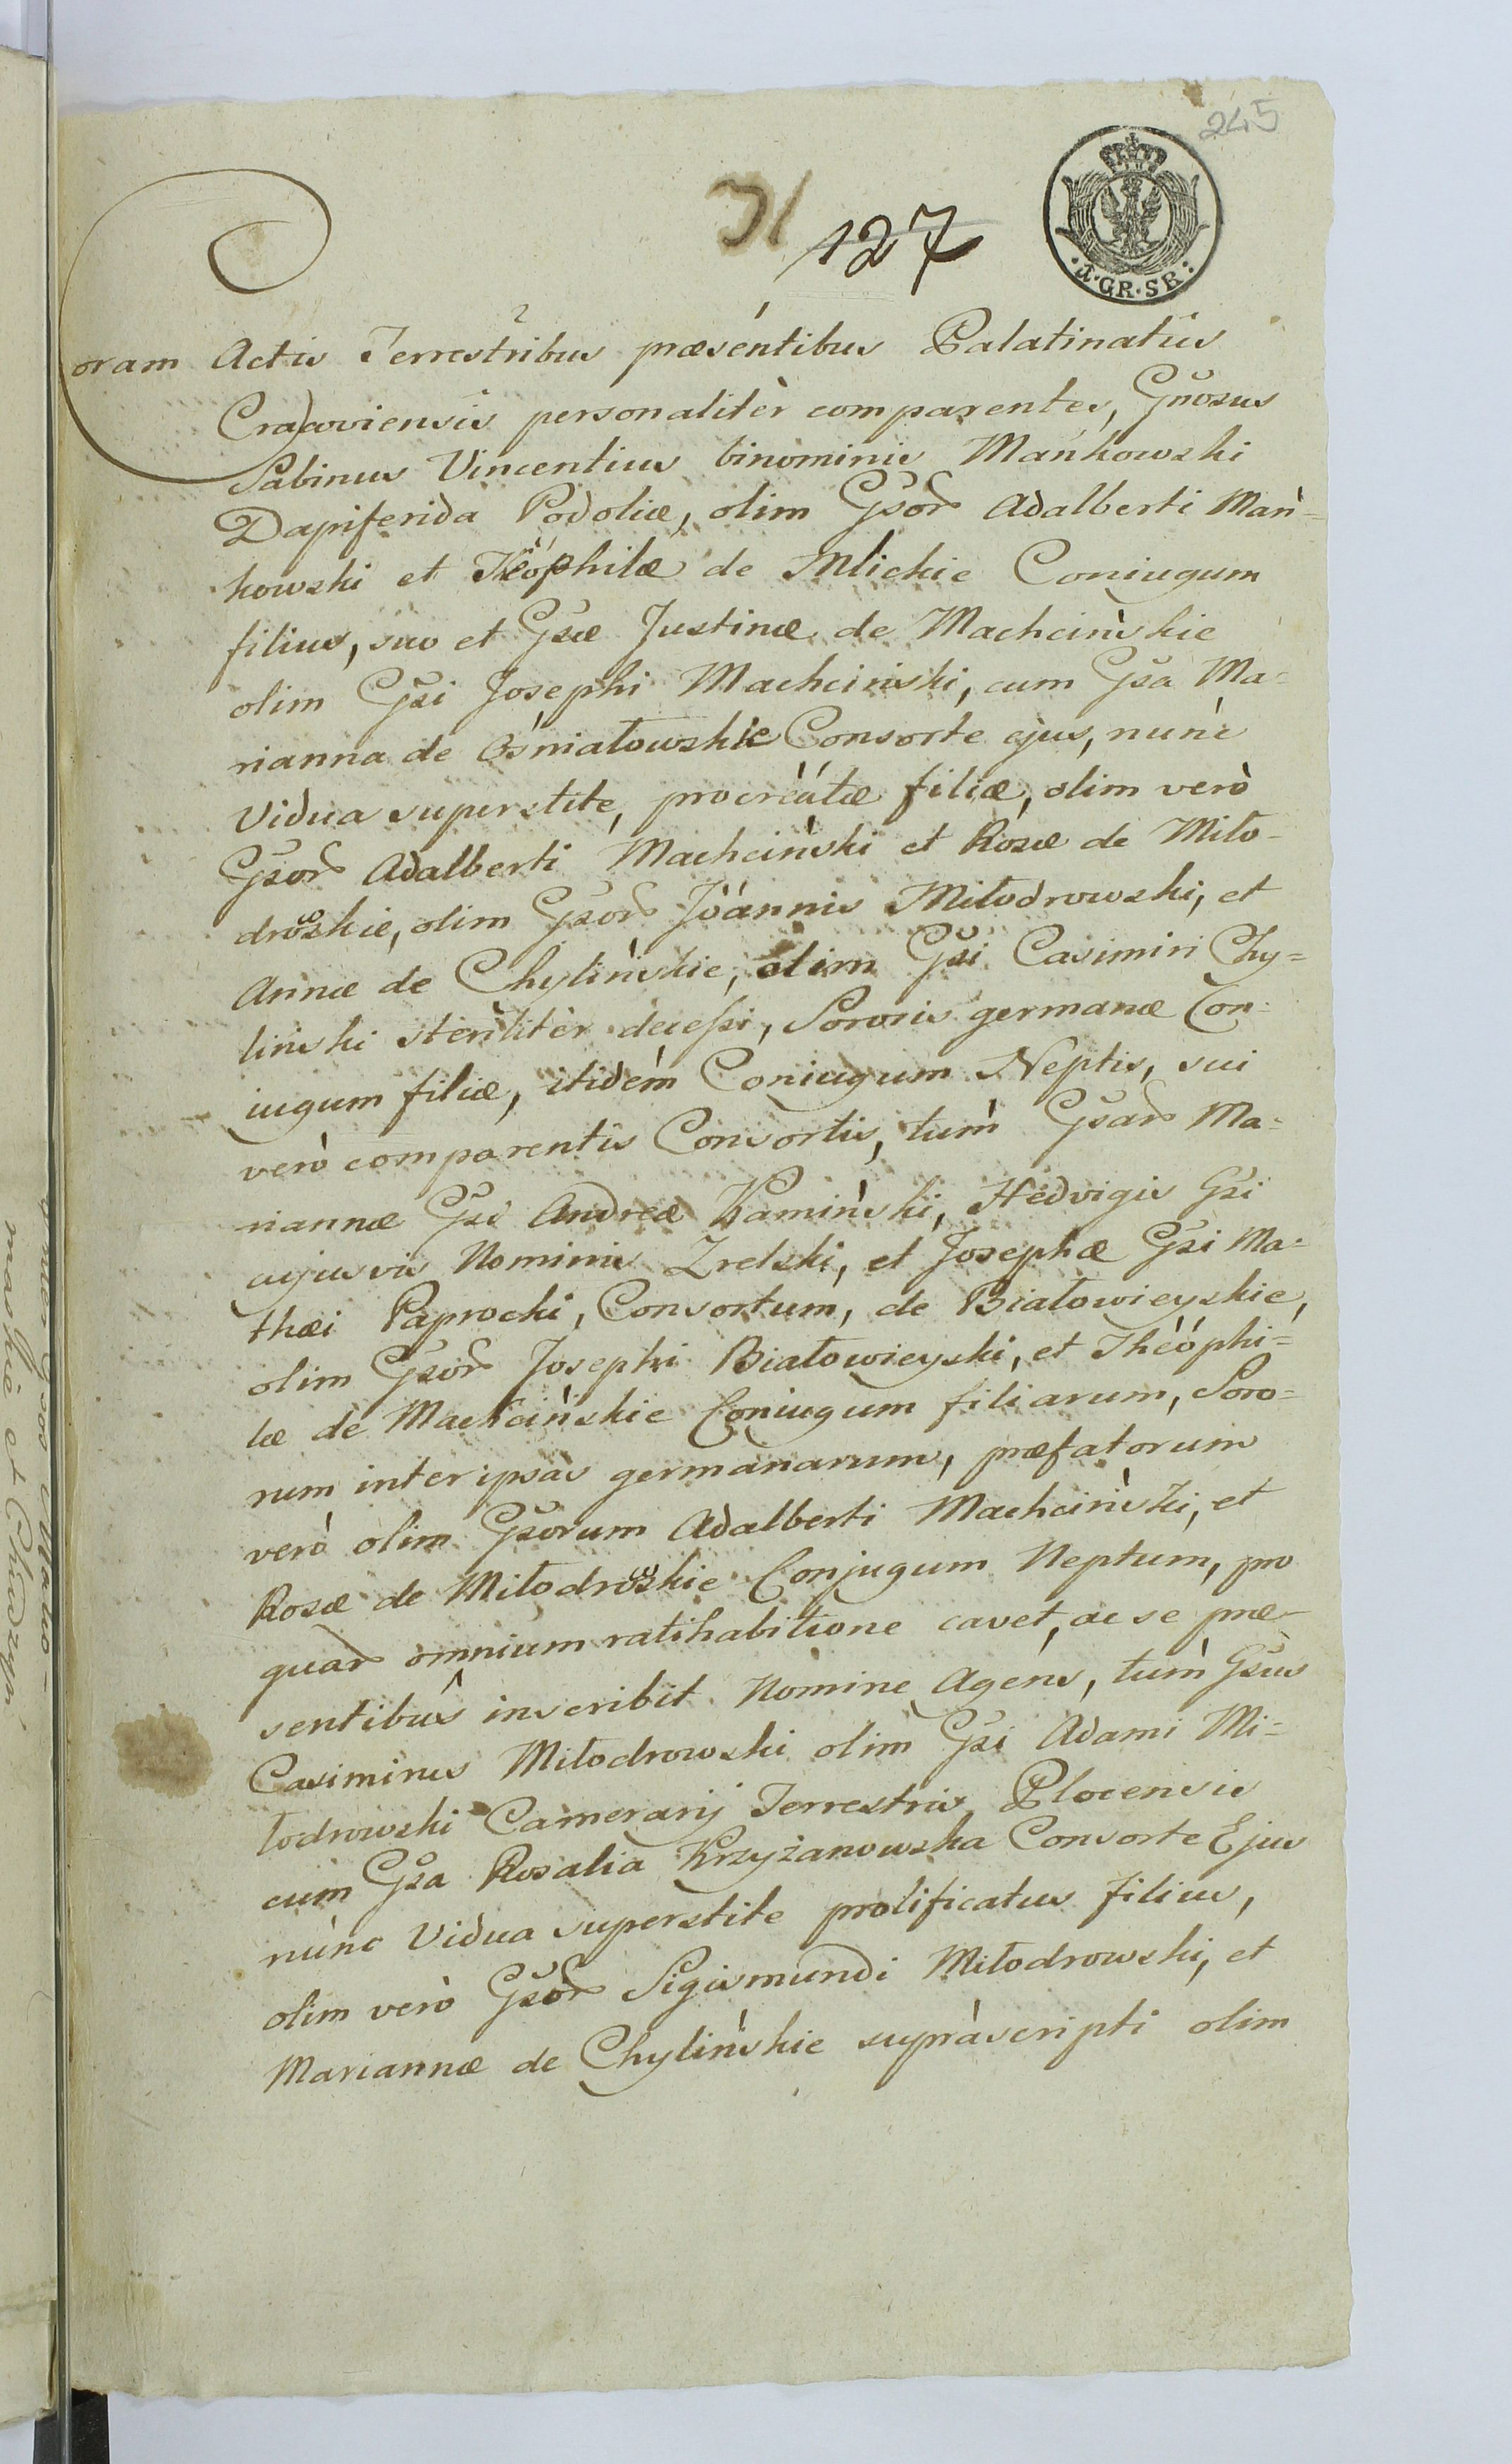 245
127
·I·GR·SR:
Coram Actis Terrestribus præsentibus Palatinatûs
Cracoviensis personalitèr comparentes, Gnosus
Sabinus Vincentius binominis Mańkowski
Dapiferida Podoliæ, olim Gsor̃ Adalberti Mań=
kowski et Theóphilæ de Mlickie Coniugum
filius, suo et Gsæ Justinæ de Machcińskie
olim Gsi Josephi Machciński, cum Gsa Ma=
rianna de Ośniałowskie Consorte ejus, nunc
Vidua superstite, procreatæ filiæ, olim verò
Gsor̃ Adalberti Machciński et Rosæ de Miło-
drowskie, olim Gsor̃ Joannis Miłodrowski, et
Annæ de Chylińskie, olim Gsi Casimiri Chy=
liński stèrilitèr decessi, Sororis germanæ Con=
iugum filiæ, itidém Coniugum Neptis, sui
verò comparentis Consortis, tum Gsar̃ Ma=
riannæ Gsi Andreæ Kamiński, Hedvigis Gsi
cujusvis Nominis Zrelski, et Josephæ Gsi Ma=
thæi Paprocki, Consortum, de Białowieyskie,
olim Gsor̃ Josephi Białowieyski, et Théóphi=
læ de Machcińskie Coniugum filiarum, Soro=
rum inter ipsas germanarum, præfatorum
verò olim Gsorum Adalberti Machciński, et
Rosæ de Miłodrowskie Conjugum Neptum, pro
quar̃ omnium ratihabitione cavet, ac se præ-
sentibus inscribit Nomine Agens, tùm Gsus
Casimirus Miłodrowski olim Gsi Adami Mi=
łodrowski Camerarij Terrestris Plocensis
cum Gsa Rosalia Krzyżanowska Consorte Ejus
nunc Vidua superstite prolificatus filius,
olim verò Gsor̃ Sigismundi Miłodrowski, et
Mariannæ de Chylińskie supràscripti olim